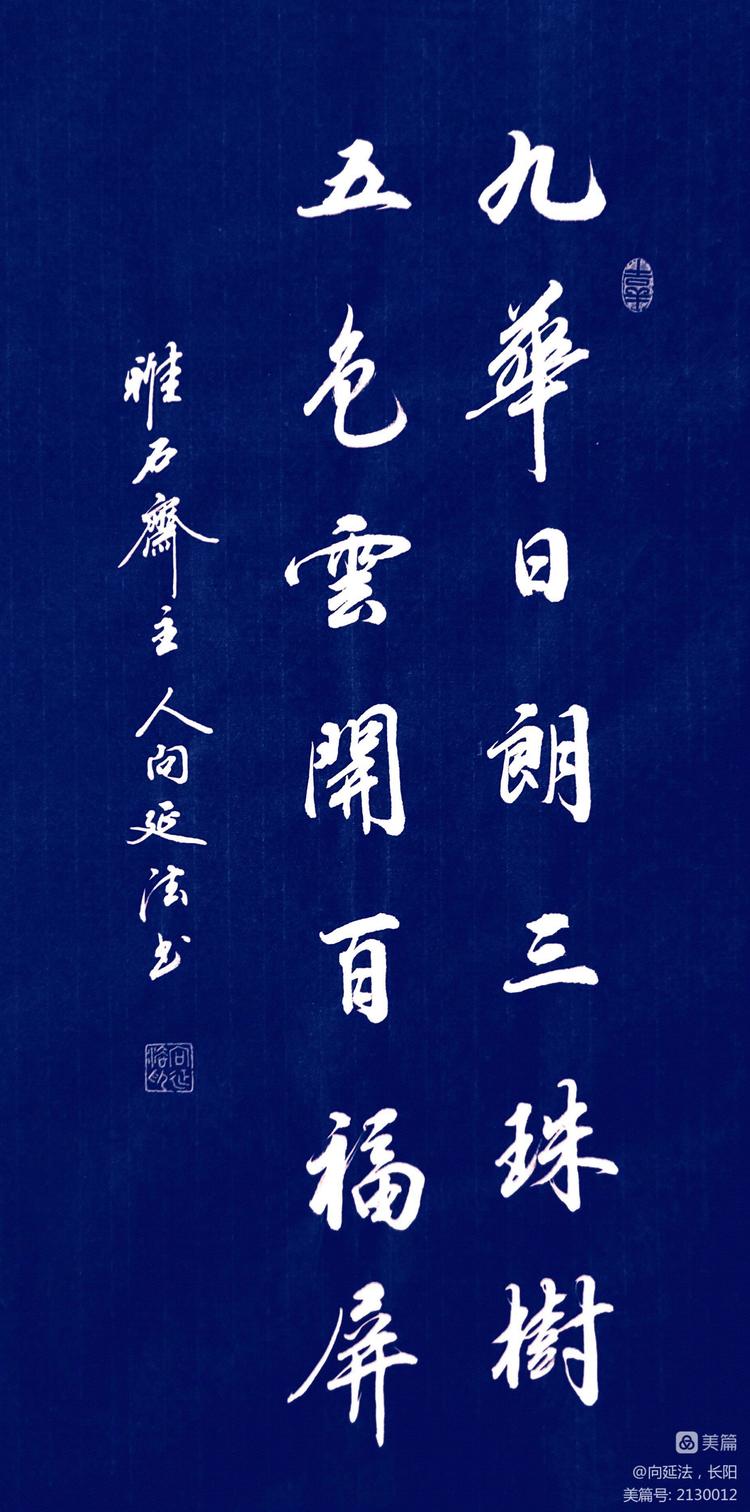 九華日朗三珠樹
五色雲開百福屏
雅石齋主人向延法书
美篇
@向延法，长阳
美篇号: 2130012